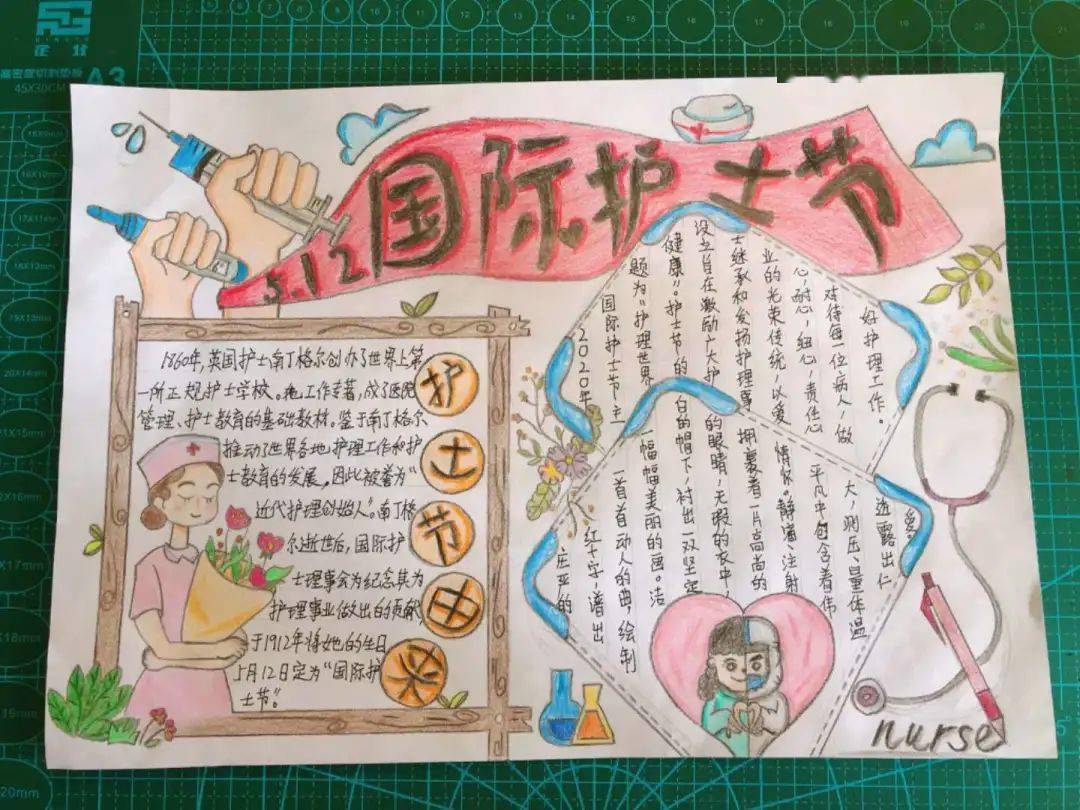 高密度切割垫板 A3
45X30CM
国际护士节
5.12
1860年，英国护士南丁格尔创办了世界上第
一所正规护士学校。她工作专著，成了医院
管理、护士教育的基础教材。鉴于南丁格尔
推动了世界各地护理工作和护
士教育的发展，因此被誉为“
近代护理创始人”。南丁格
尔逝世后，国际护
士理事会为纪念其为
护理事业做出的贡献
于1912年将她的生日
5月12日定为“国际护
士节”。
护
士
节
由
来
2020年
国际护士节主
题为“护理世界
健康”。护士节的
设立旨在激励广大护
士继承和发扬护理事
业的光荣传统，以爱
心，耐心，细心，责任心
对待每一位病人，做
好护理工作。
庄严的
红十字谱出
一首首动人的曲，绘制
一幅幅美丽的画。洁
白的帽下，衬出一双坚定
的眼睛，无暇的衣中，
拥裹着一片高尚的
情怀。静滴、注射
平凡中包含着伟
大，测压、量体温
透露出仁
爱。
nurse